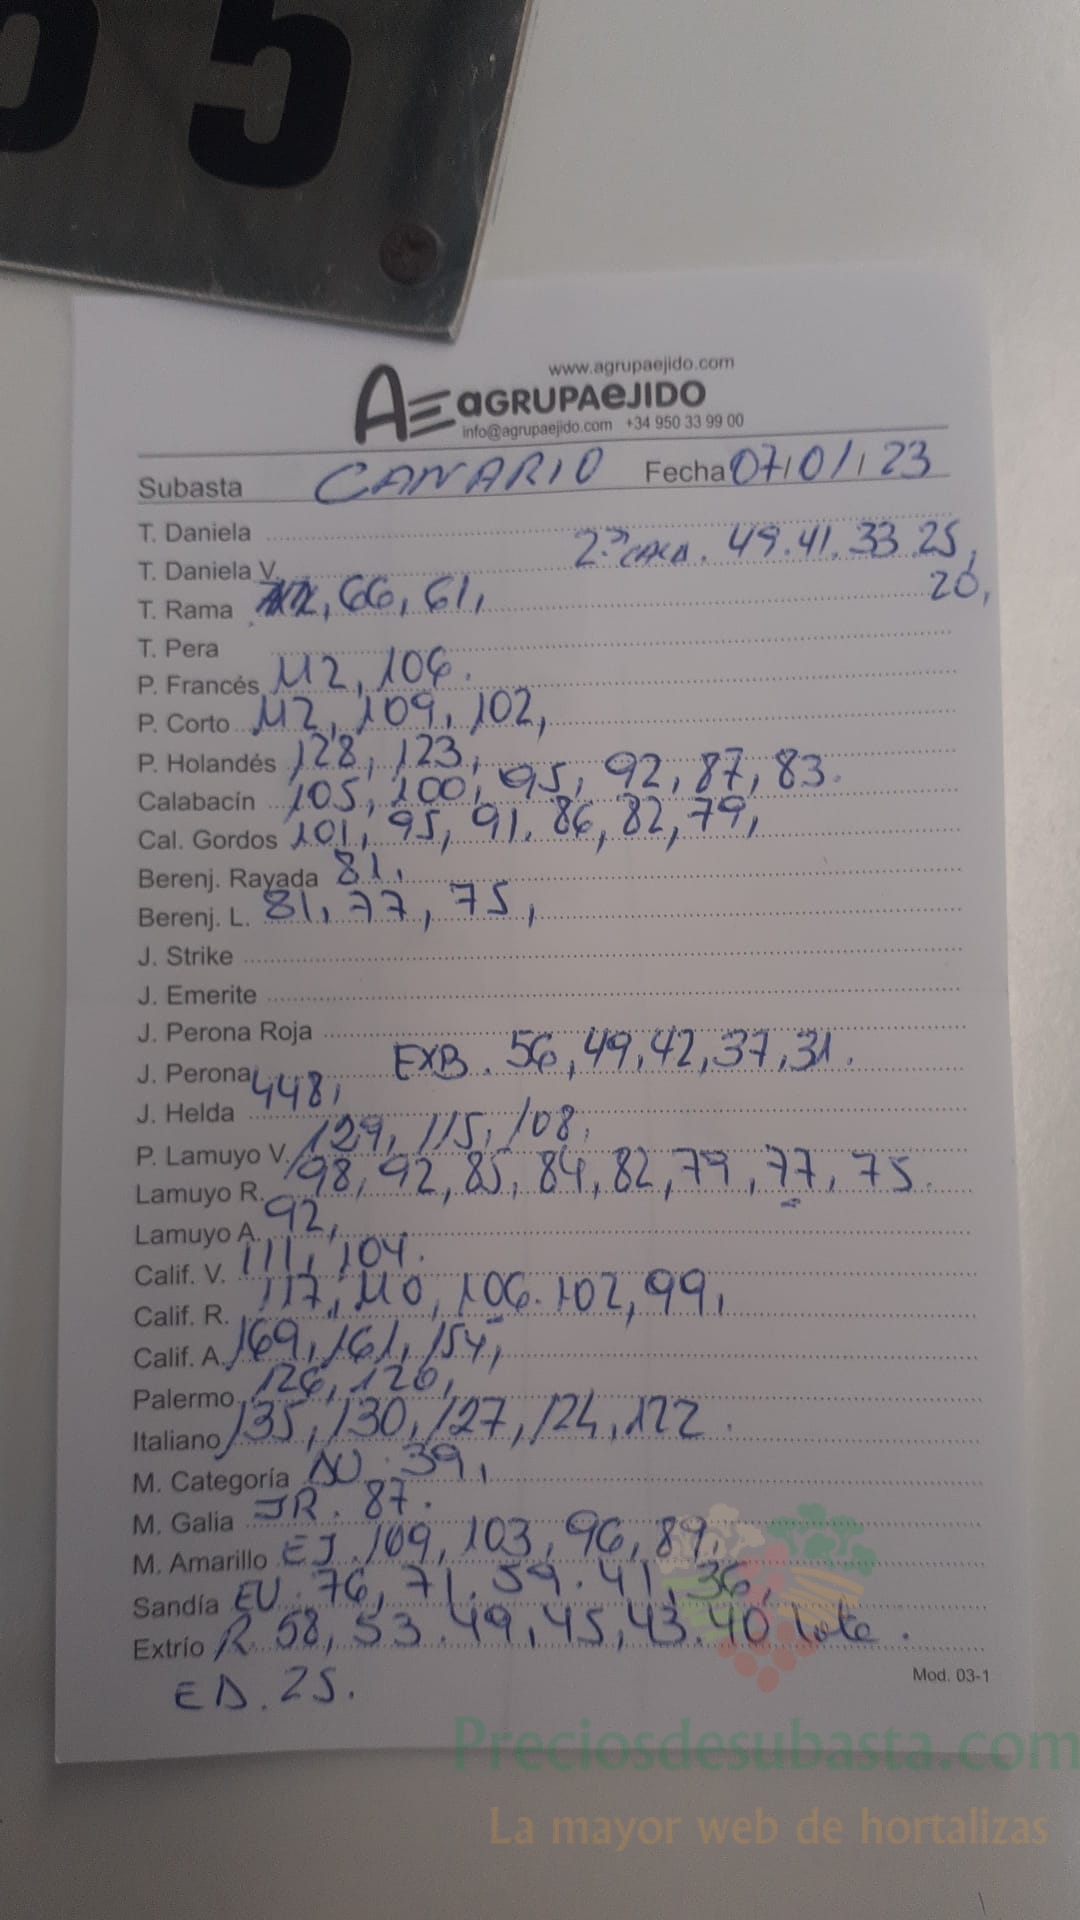 55
www.agrupaejido.com
AE aGRUPAeJIDO
info@agrupaejido.com +34 950 33 99 00
Subasta CANARIO Fecha 07/01/23
T. Daniela
T. Daniela V. 2ª CALA. 49.41.33.25,
T. Rama 66, 61, 20,
T. Pera
P. Francés 112, 106.
P. Corto 112, 109, 102,
P. Holandés 128, 123,
Calabacín 105, 100, 95, 92, 87, 83.
Cal. Gordos 101, 95, 91. 86, 82, 79,
Berenj. Rayada 81,
Berenj. L. 81, 77, 75,
J. Strike
J. Emerite
J. Perona Roja
J. Perona 448, EXB. 56, 49, 42, 37, 31.
J. Helda
P. Lamuyo V. 129, 115, 108,
Lamuyo R. 98, 92, 85, 84, 82, 79, 77, 75.
Lamuyo A. 92,
Calif. V. 111, 104.
Calif. R. 117, 110, 106. 102, 99,
Calif. A. 169, 161, 154,
Palermo 126, 120,
Italiano 135, 130, 127, 124, 122.
M. Categoría 39,
M. Galia JR. 87.
M. Amarillo EJ. 109, 103, 96, 89,
Sandía EU. 76, 71. 59. 41, 36,
Extrío R 58, 53. 49, 45, 43. 40 lote.
ED. 25.
Mod. 03-1
Preciosdesubasta.com
La mayor web de hortalizas